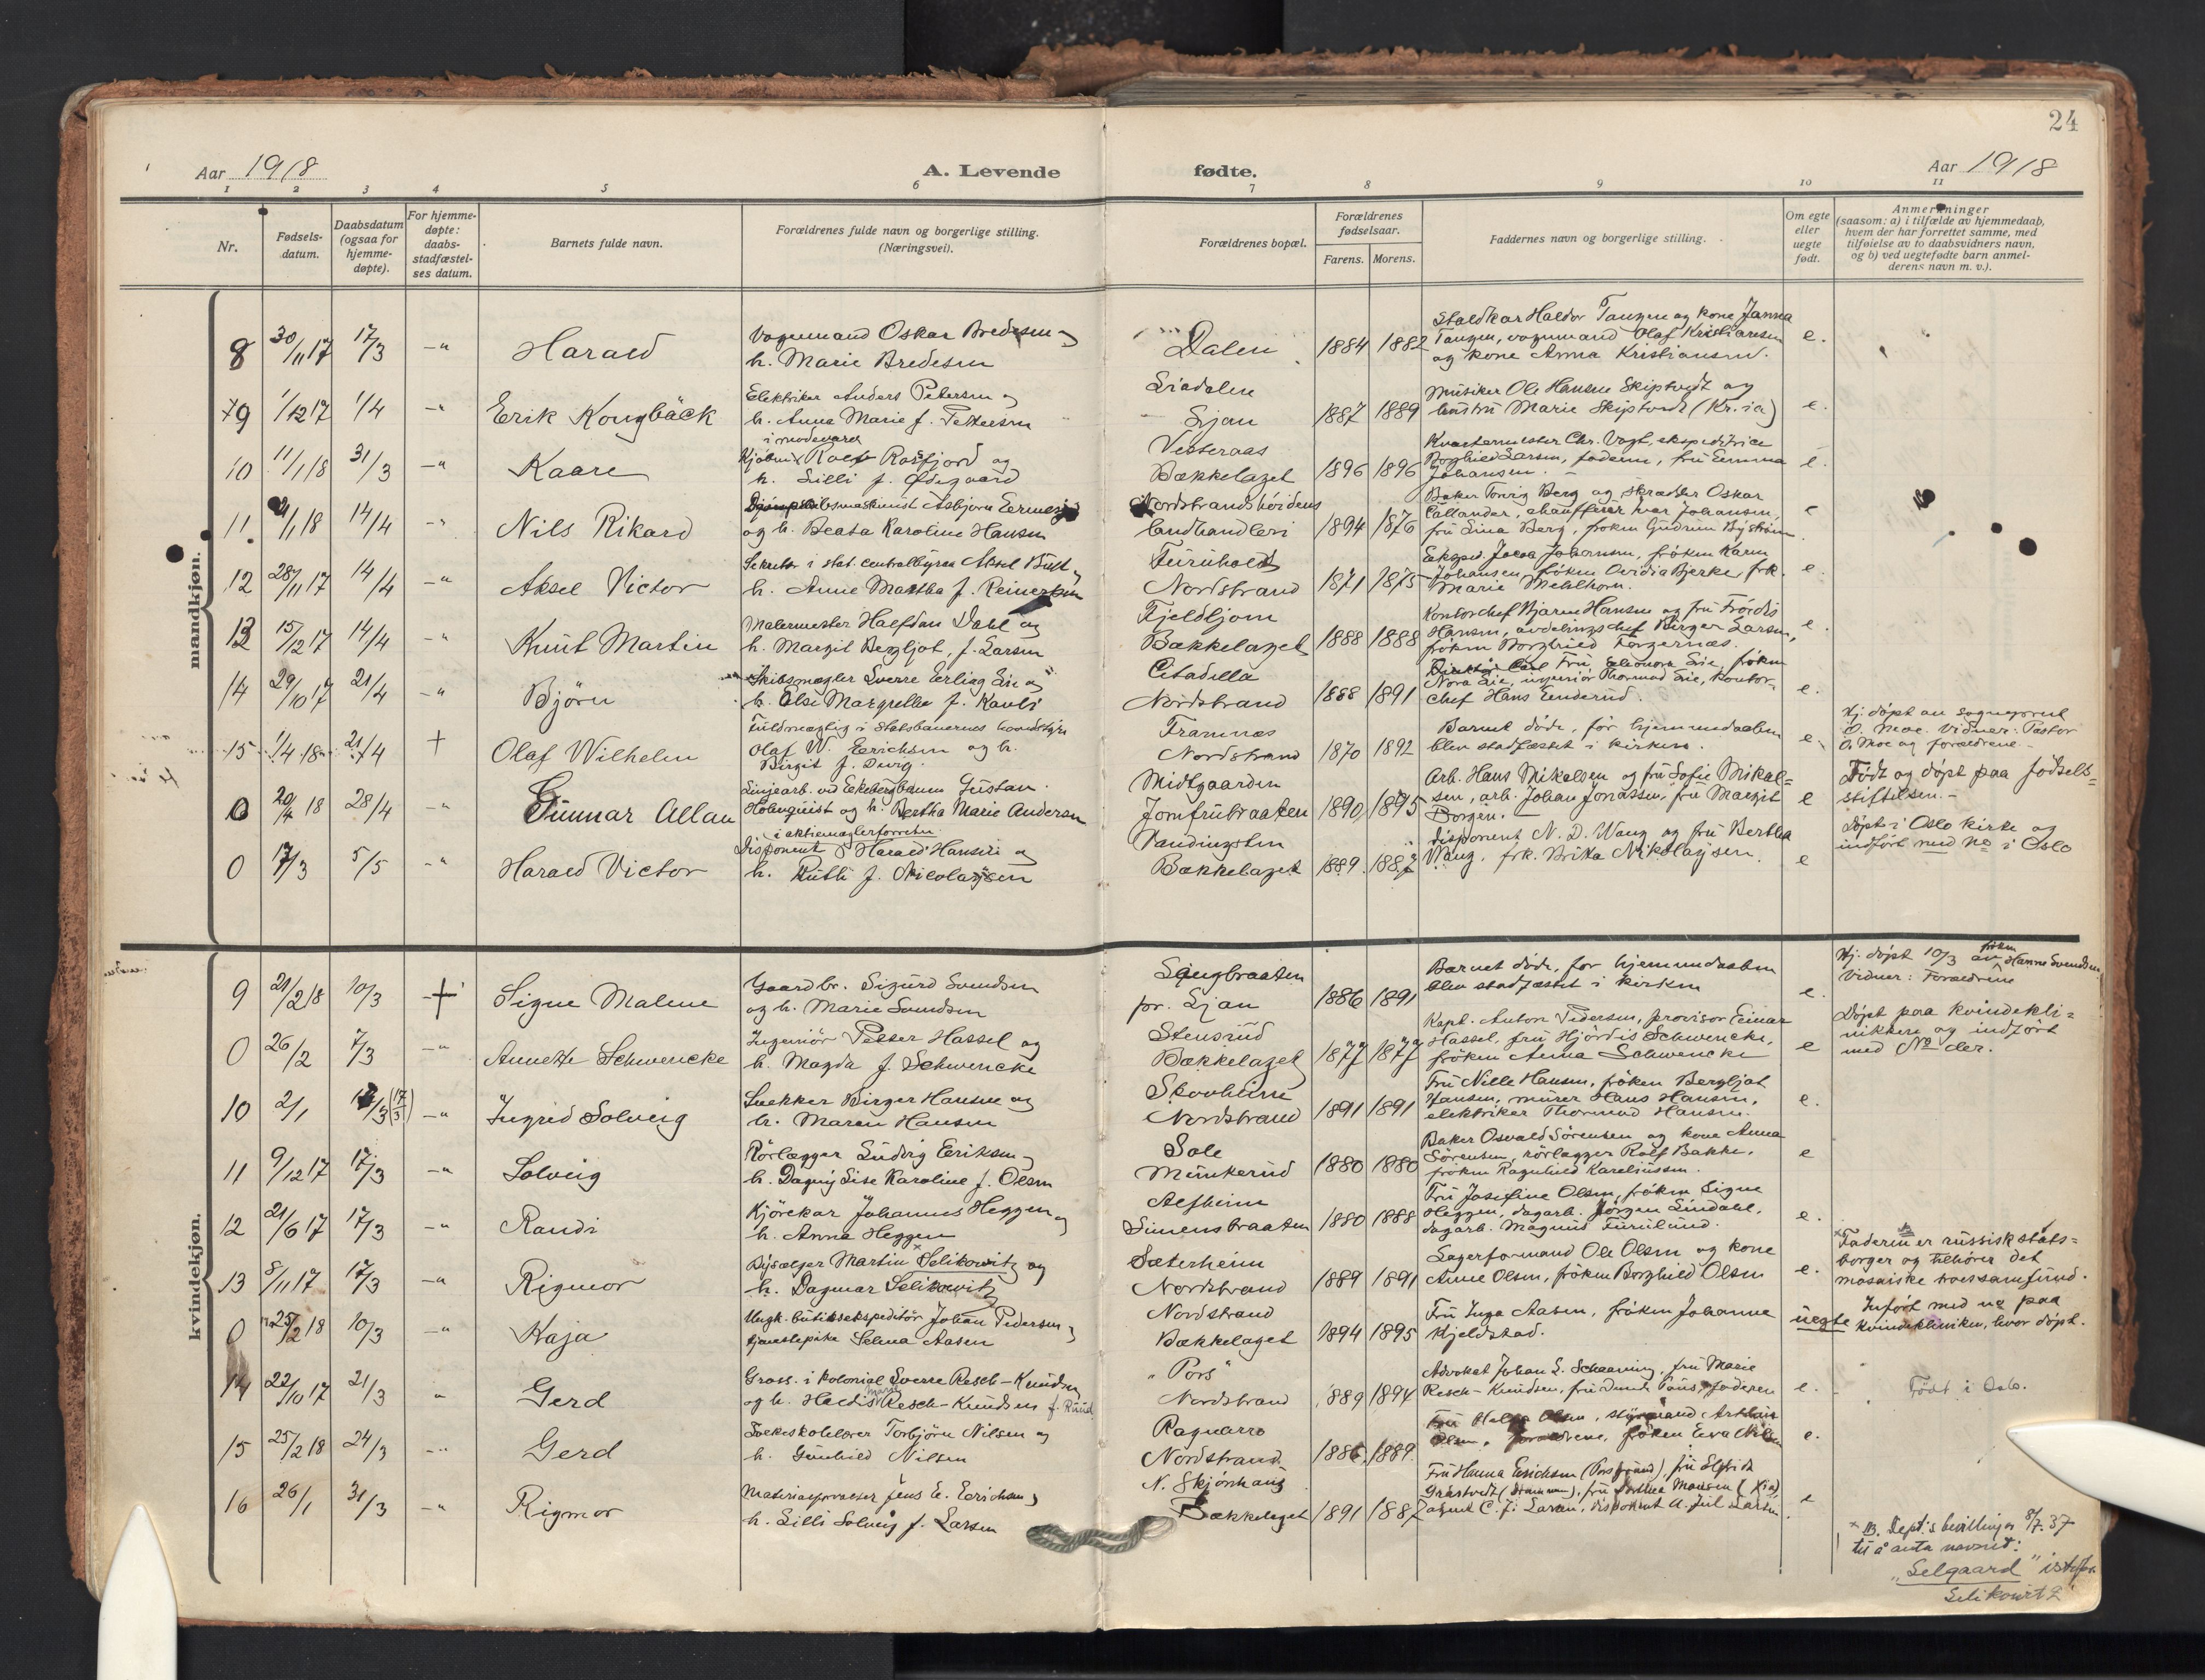 24
Aar 1918
A. Levende
fødte.
Aar 1918
1 2 3 4 5 6 7 8 9 10 11
Nr.
Fødsels-
datum.
Daabsdatum
(ogsaa for
hjemme-
døpte).
For hjemme-
døpte:
daabs-
stadfæstel-
ses datum.
Barnets fulde navn.
Forældrenes fulde navn og borgerlige stilling.
(Næringsvei).
Forældrenes bopæl.
Forældrenes
fødselsaar.
Farens. Morens.
Faddernes navn og borgerlige stilling.
Om egte
eller
uegte
født.
Anmerkninger
(saasom: a) i tilfælde av hjemmedaab,
hvem der har forrettet samme, med
tilføielse av to daabsvidners navn,
og b) ved uegtefødte barn anmel-
derens navn m. v.).
mandkjøn.
8 30/11 17 17/3 -"- Harald
Vognmand Oskar Bredesen og
h. Marie Bredesen
Dalen 1884 1882
Staldkar Haldor Tangen og kone Janna
Tangen, vognmand Olaf Kristiansen
og kone Anna Kristiansen.
e.
9 1/12 17 1/4 -"- Erik Kongbäck
Elektriker Anders Petersen og
h. Anna Marie f. Pettersen
Liadalen
Ljan 1887 1889
Musiker Ole Hansen Skiptvedt og
hustru Marie Skiptvedt (Kr.ia)
e.
10 11/1 18 31/3 -"- Kaare
i modevarer
Kjøbm. Rolf Rasfjord og
h. Lilli f. Ødegaard
Vesteraas
Bækkelaget 1896 1896
Kvartermester Chr. Vogt, ekspeditrice
Borghild Larsen, faderen, fru Emma
Johansen.
e.
11. 4/1 18 14/4 -"- Nils Rikard
Asbjørn
og h. Beata Karoline Hansen
Nordstrandshøidens
landhandleri 1894 1876
Baker Tonrig Berg og skrædder Oskar
Callander, chauffeur Ivar Johansen,
fru Lina Berg, frøken Gudrun Byström.
e
12 28/11 17 14/4 -"- Aksel Victor
Sekretær i stat. centralbyraa Aksel Bull og
h. Anne Martha f. Reinertsen
Furuholdt
Nordstrand 1871 1875
Eksped. Jacob Johansen, frøken Karen
Johansen, frøken Ovidia Bjerke, frk.
Marie Mehlhorn.
e.
13 15/12 17 14/4 -"- Knut Martin
Malermester Halfdan Dahl og
h. Margit Bergljot, f. Larsen
Fjeldljom
Bækkelaget 1888 1888
Kontorchef Bjarne Hansen og fru Frøidis
Hansen, avdelingschef Birger Larsen,
frøken Borghild Torgersnes.
e.
14 29/10 17 21/4 -"- Bjørn
Skibsmægler Sverre Erling Lie og
h. Elsi Margrethe f. Kavli
Citadella
Nordstrand 1888 1891
Fru Eleonora Lie, frøken
Nora Lie, ingeniør Thormod Lie, kontor-
chef Hans Enderud.
e.
15 1/4 18 21/4 + Olaf Wilhelm
Fuldmægtig i Statsbanernes hovedstyre
Olaf W. Erichsen og h.
Birgit f.
Framnæs
Nordstrand 1870 1892
Barnet døde, før hjemmedaaben
blev stadfæstet i kirken.
e.
Hj. døpt av sogneprest
O. Moe. Vidner: Pastor
O. Moe og forældrene.-
0 20/4 18 28/4 -"- Gunnar Allan
Linjearb. ved Ekebergbanen Gustav
Holmquist og h. Bertha Marie Andersen
Midtgaarden
Jomfrubraaten 1890 1895
Arb. Hans Mikalsen og fru Sofie Mikal=
sen, arb. Johan Jonassen, fru Margit
Borgen.
e
Født og døpt paa fødsels=
stiftelsen.-
0 17/3 5/5 -"- Harald Victor
i aktiemæglerforretn.
Disponent Harald Hansen og
h. Ruth f. Nicolaysen
Vandingsten
Bækkelaget 1889. 1887
Disponent N. D. Wang og fru Bertha
Wang, frk. Brita Nikolaysen.
e
Døpt i Oslo kirke og
indført med No i Oslo
kvindekjøn.
9 21/2 18 10/3 + Signe Malene
Gaardbr. Sigurd Svendsen
og h. Marie Svendsen
Ljangbraaten
pr. Ljan 1886 1891
Barnet døde, før hjemmedaaben
blev stadfæstet i kirken
e.
Hj. døpt 10/3 av frøken Hanne Svendsen
Vidner: Forældrene
0 26/2 7/3 -"- Annette Schwencke
Ingeniør Petter Hassel og
h. Magda f. Schwencke
Stensrud
Bækkelaget 1877 1877
Kapt. Anton Pedersen, provisor Einar
Hassel, fru Hjørdis Schwencke,
frøken Anna Schwencke
e
Døpt paa kvindekli=
nikken og indført
med No der.
10 2/1 17/3 (17/3) -"- Ingrid Solveig
Snekker Birger Hansen og
h. Maren Hansen
Skovheim
Nordstrand 1891 1891
Fru Nille Hansen, frøken Bergljot
Hansen, murer Hans Hansen,
elektriker Thormod Hansen.
e.
11 9/12 17 17/3 -"- Solveig
Rørlægger Ludvig Eriksen og
h. Dagny Lise Karoline f. Olsen
Sole
Munkerud 1880 1880
Baker Osvald Sørensen og kone Anna
Sørensen, rørlægger Rolf Bakke,
frøken Ragnhild Kareliussen.
e
12 21/6 17 17/3 -"- Randi
Kjørekar Johannes Heggen og
h. Anna Heggen
Alfheim
Simensbraaten 1880 1888
Fru Josefine Olsen, frøken Signe
Heggen, dagarb. Jørgen Lindahl,
dagarb. Magnus Furulund.
e.
13 8/11 17 17/3 -"- Rigmor
Bysælger Martin × Selikowitz og
h. Dagmar Selikowitz
Sæterheim
Nordstrand 1889 1891
Lagerformand Ole Olsen og kone
Anne Olsen, frøken Borghild Olsen
e.
× Faderen er russisk stats=
borger og tilhører det
mosaiske troessamfund.
0 25/2 18 10/3 -"- Kaja
Ungk. butiksekspeditør Johan Pedersen og
tjenestepike Selma Aasen
Nordstrand
Bækkelaget 1894 1895
Fru Inga Aasen, frøken Johanne
Kjeldstad.
uegte
Inført med no paa
Kvindekliniken, hvor døpt.
14 22/10 17 21/3 " Gerd
Gross. i kolonial Sverre Resch-Knudsen
og h. Haldis Marie Resch-Knudsen f. Ruud
"Pors"
Nordstrand 1889 1894
Advokat Johan L. Schaaning, fru Marie
Resch-Knudsen, fru Paus, faderen
e.
Født i Oslo.
15 25/2 18 24/3 -"- Gerd
Folkeskolelærer Torbjørn Nilsen og
h. Gunhild Nilsen
Ragnarro
Nordstrand 1886. 1889.
Fru Helga Olsen, styrmand Arthur
Olsen, forældrene, frøken Eva Nilsen
e.
16 26/1 31/3 -"- Rigmor
Materialforvalter Jens E. Erichsen og
h. Lilli Solveig f. Larsen
N. Skjønhaug
Bækkelaget 1891 1887
Fru Hanna Erichsen (Porsgrund), fru Elfrida
Gråstvedt (Drammen), fru Monsen (Kria)
agent C. F. Larsen, disponent A. Juul Larsen.
e
× J.D. Dept.s bevilling av 8/7. 37
til å anta navnet:
"Selgaard" istedf.
Selikowitz